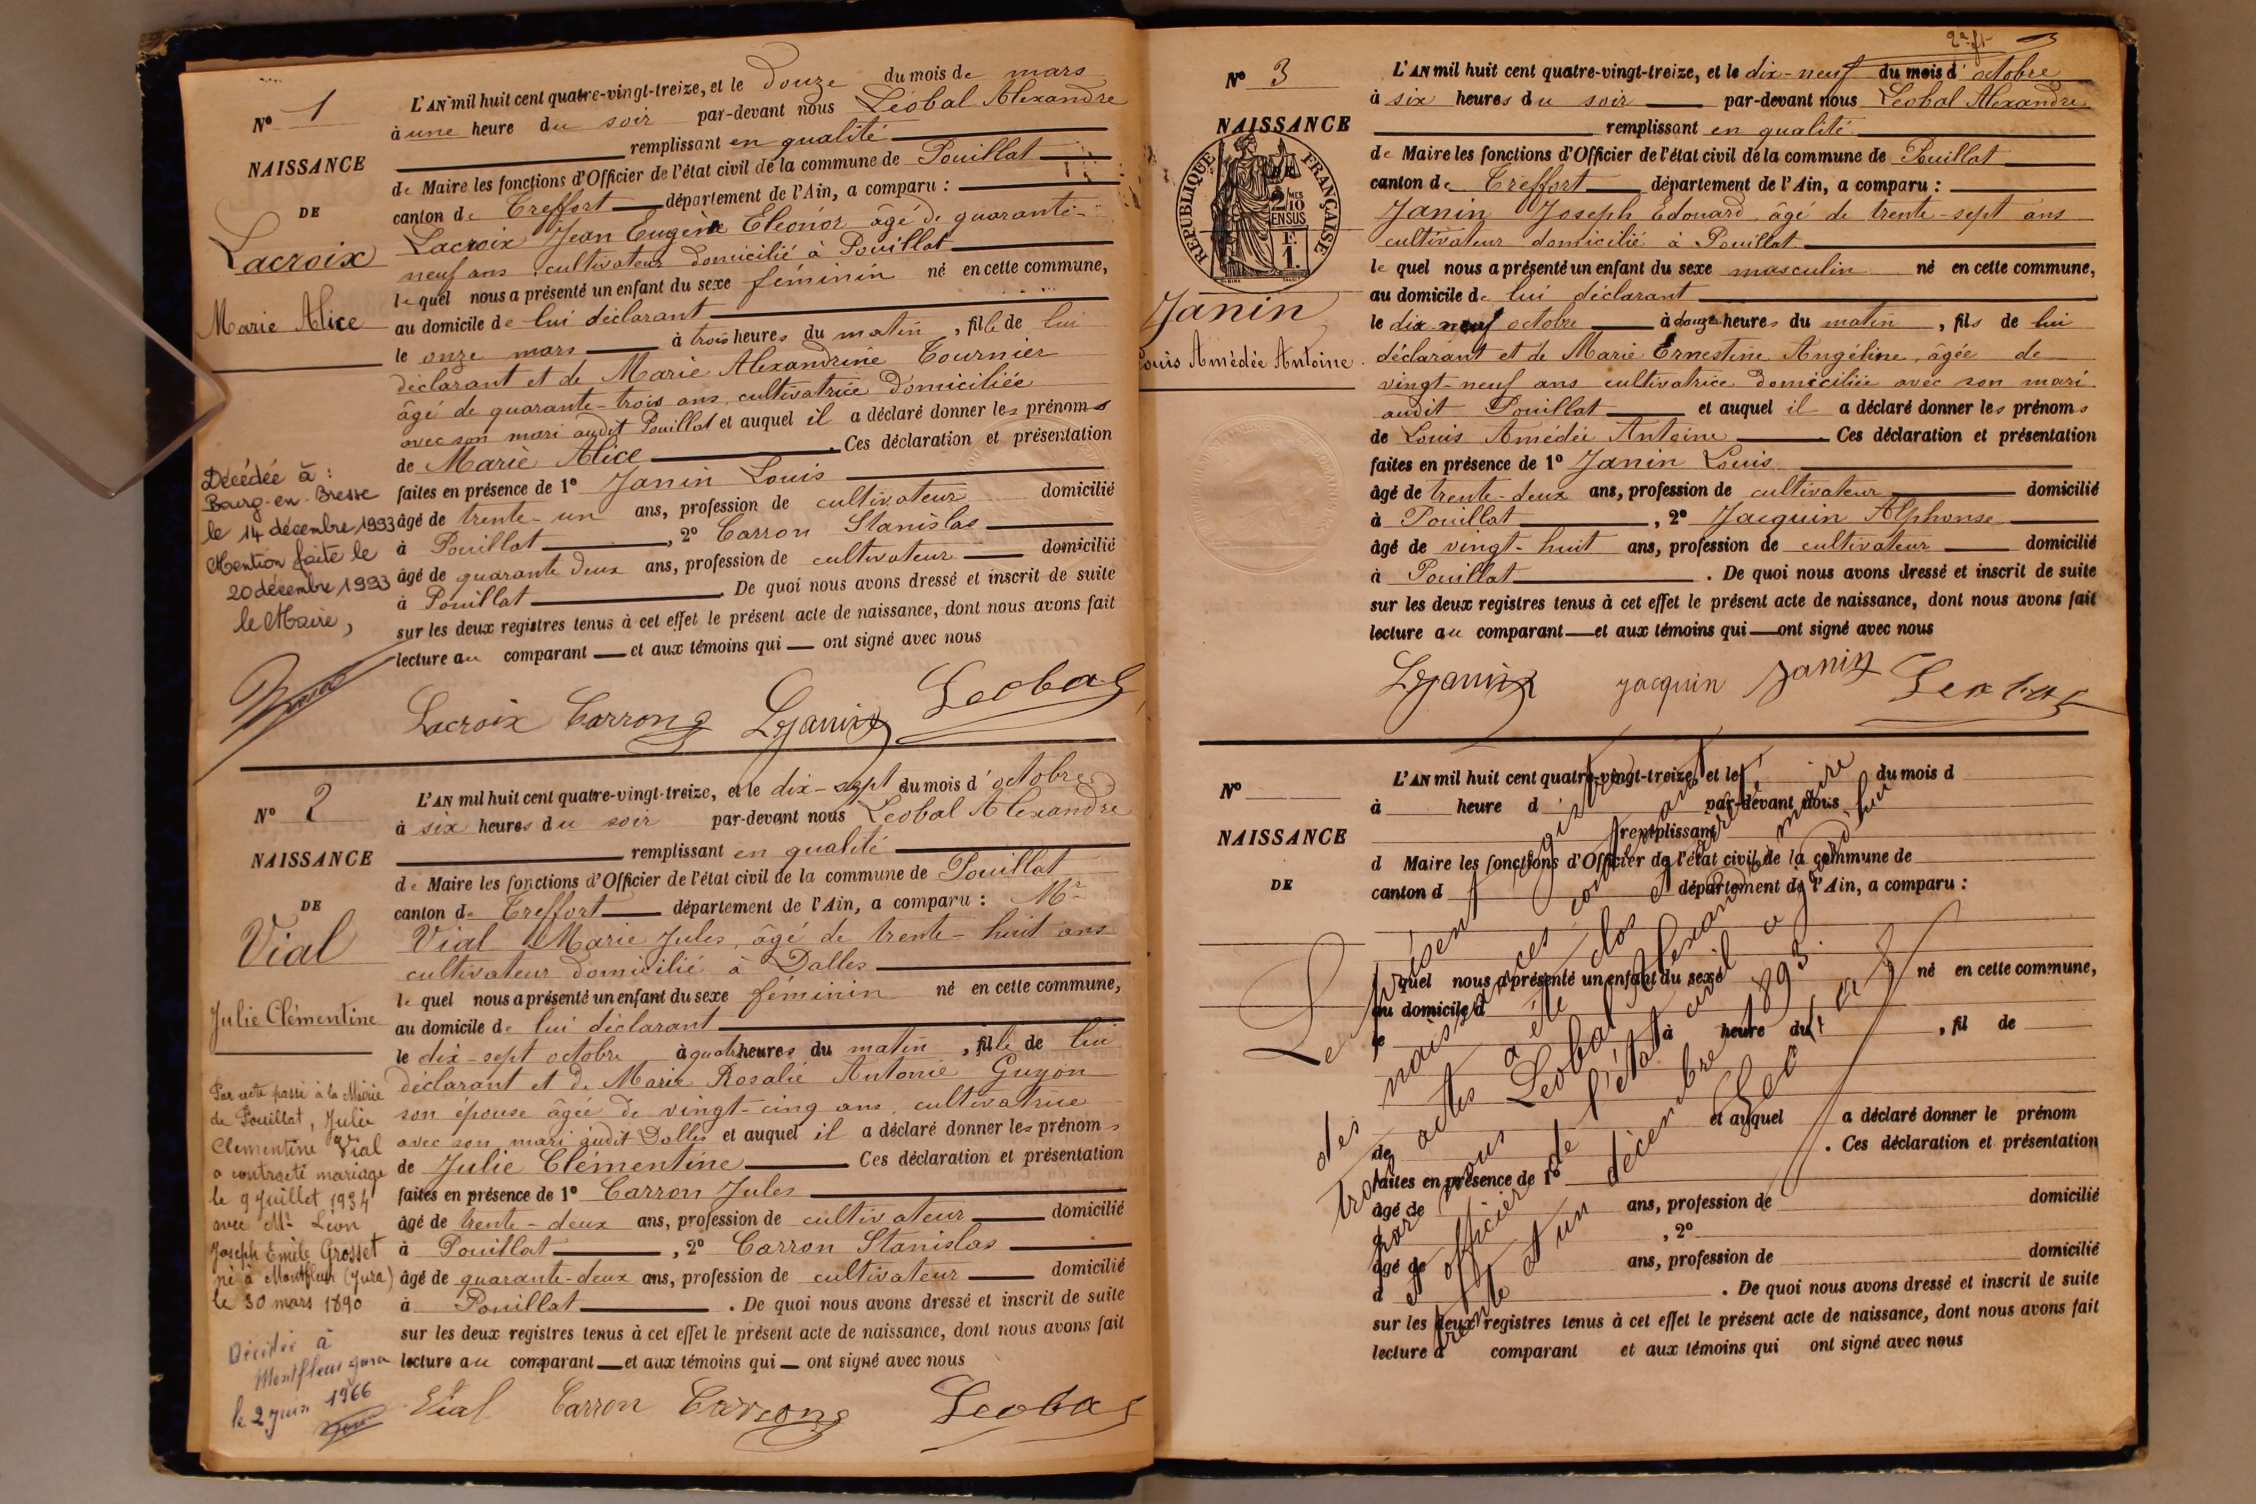 N° 1
NAISSANCE
DE
Lacroix
Marie Alice
Décédée à :
Bourg-en-Bresse
le 14 décembre 1993
Mention faite le
20 décembre 1993
le Maire,
L'AN mil huit cent quatre-vingt-treize, et le douze du mois de mars
à une heure du soir par-devant nous Léobal Alexandre
remplissant en qualité
de Maire les fonctions d'Officier de l'état civil de la commune de Pouillat
canton de Treffort département de l'Ain, a comparu :
Lacroix Jean Eugène Eléonor âgé de quarante-
neuf ans cultivateur domicilié à Pouillat
le quel nous a présenté un enfant du sexe féminin né en cette commune,
au domicile de lui déclarant
le onze mars à trois heures du matin, fille de lui
déclarant et de Marie Alexandrine Tournier
âgé de quarante-trois ans, cultivatrice domiciliée
avec son mari audit Pouillat et auquel il a déclaré donner les prénoms
de Marie Alice . Ces déclaration et présentation
faites en présence de 1° Janin Louis
âgé de trente-un ans, profession de cultivateur domicilié
à Pouillat , 2° Carron Stanislas
âgé de quarante deux ans, profession de cultivateur domicilié
à Pouillat . De quoi nous avons dressé et inscrit de suite
sur les deux registres tenus à cet effet le présent acte de naissance, dont nous avons fait
lecture au comparant et aux témoins qui ont signé avec nous
Lacroix Carron Ljanin Leobal
N° 2
NAISSANCE
DE
Vial
Julie Clémentine
Par acte passé à la Mairie
de Pouillat, Julie
Clementine Vial
a contracté mariage
le 9 Juillet 1934
avec Mr Léon
Joseph Emile Grosset
né à Montfleur (Jura)
le 30 mars 1890
Décédée à
Montfleur Jura
le 2 juin 1966
L'AN mil huit cent quatre-vingt-treize, et le dix-sept du mois d'octobre
à six heures du soir par-devant nous Léobal Alexandre
remplissant en qualité
de Maire les fonctions d'Officier de l'état civil de la commune de Pouillat
canton de Treffort département de l'Ain, a comparu : Mr
Vial Marie Jules, âgé de trente-huit ans
cultivateur domicilié à Dalles
le quel nous a présenté un enfant du sexe féminin né en cette commune,
au domicile de lui déclarant
le dix-sept octobre à quatre heures du matin, fille de lui
déclarant et de Marie Rosalie Antonie Guyon
son épouse âgée de vingt-cinq ans, cultivatrice
avec son mari audit Dalles et auquel il a déclaré donner les prénoms
de Julie Clémentine Ces déclaration et présentation
faites en présence de 1° Carron Jules
âgé de trente-deux ans, profession de cultivateur domicilié
à Pouillat , 2° Carron Stanislas
âgé de quarante-deux ans, profession de cultivateur domicilié
à Pouillat . De quoi nous avons dressé et inscrit de suite
sur les deux registres tenus à cet effet le présent acte de naissance, dont nous avons fait
lecture au comparant et aux témoins qui ont signé avec nous
Vial Carron Carron Leobal
N° 3
NAISSANCE
RÉPUBLIQUE FRANÇAISE
2/10 EN SUS
F. 1.
Janin
Louis Amédée Antoine
L'AN mil huit cent quatre-vingt-treize, et le dix-neuf du mois d'octobre
à six heures du soir par-devant nous Leobal Alexandre
remplissant en qualité
de Maire les fonctions d'Officier de l'état civil de la commune de Pouillat
canton de Treffort département de l'Ain, a comparu :
Janin Joseph Edouard âgé de trente-sept ans
cultivateur domicilié à Pouillat
le quel nous a présenté un enfant du sexe masculin né en cette commune,
au domicile de lui déclarant
le dix neuf octobre à douze heures du matin, fils de lui
déclarant et de Marie Ernestine Angéline, âgée de
vingt-neuf ans cultivatrice domiciliée avec son mari
audit Pouillat et auquel il a déclaré donner les prénoms
de Louis Amédée Antoine Ces déclaration et présentation
faites en présence de 1° Janin Louis
âgé de trente-deux ans, profession de cultivateur domicilié
à Pouillat , 2° Jacquin Alphonse
âgé de vingt-huit ans, profession de cultivateur domicilié
à Pouillat . De quoi nous avons dressé et inscrit de suite
sur les deux registres tenus à cet effet le présent acte de naissance, dont nous avons fait
lecture au comparant et aux témoins qui ont signé avec nous
Ljanin jacquin Janin Leobal
N°
NAISSANCE
DE
L'AN mil huit cent quatre-vingt-treize, et le du mois d
à heure d par-devant nous
remplissant
d Maire les fonctions d'Officier de l'état civil de la commune de
canton d département de l'Ain, a comparu :
quel nous a présenté un enfant du sexe né en cette commune,
au domicile d
le à heure du , fil de
et auquel a déclaré donner le prénom
de . Ces déclaration et présentation
faites en présence de 1°
âgé de ans, profession de domicilié
, 2°
âgé de ans, profession de domicilié
à . De quoi nous avons dressé et inscrit de suite
sur les deux registres tenus à cet effet le présent acte de naissance, dont nous avons fait
lecture a comparant et aux témoins qui ont signé avec nous
Le présent registre
des naissances contenant
trois actes a été clos et arrêté
par nous Leobal Alexandre maire
et officier de l'état civil aujourd'hui
trente et un décembre 1893.
Leobal